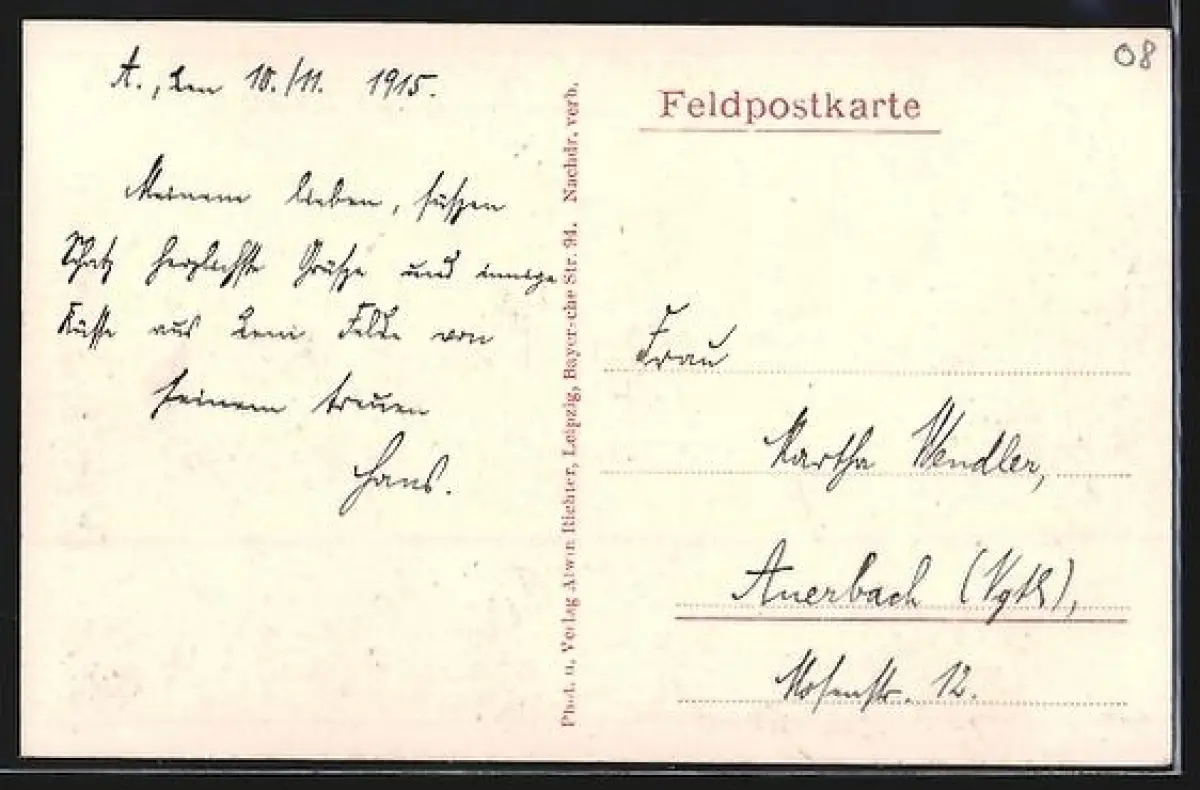 08
A., den 10./11. 1915.
Meinem lieben, süßen
Schatz herzlichste Grüße und innige
Küsse aus dem Felde von
seinem treuen
Hans.
Phot. u. Verlag Alwin Richter, Leipzig, Bayersche Str. 94. Nachdr. verb.
Feldpostkarte
Frau
Martha Wendler,
Auerbach (Vgtl),
Mosenstr. 12.